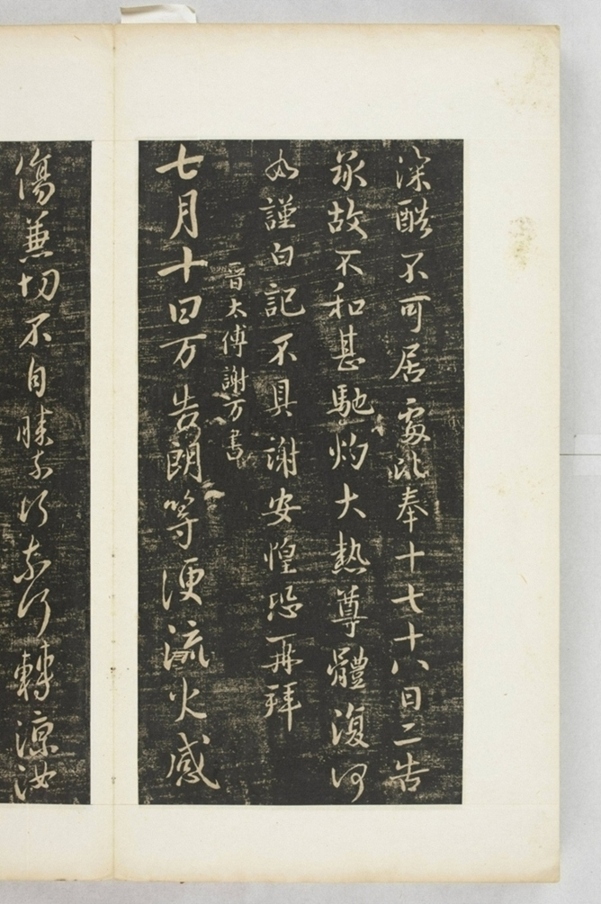 深酷不可居處此奉十七十八日二告
承故不和甚馳灼大熱尊體復何
如謹白記不具謝安惶恐再拜
晉太傅謝万書
七月十日万告朗等便流火感
傷兼切不自勝奈何奈何轉涼汝